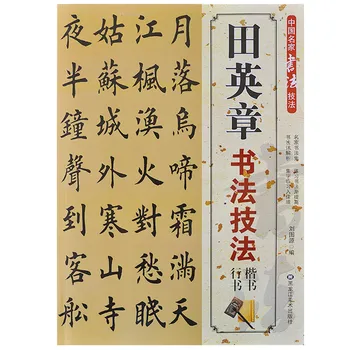 中国名家書法技法
田英章
书法技法
楷书
行书
月落烏啼霜滿天
江楓漁火對愁眠
姑蘇城外寒山寺
夜半鐘聲到客船
黑龙江美术出版社